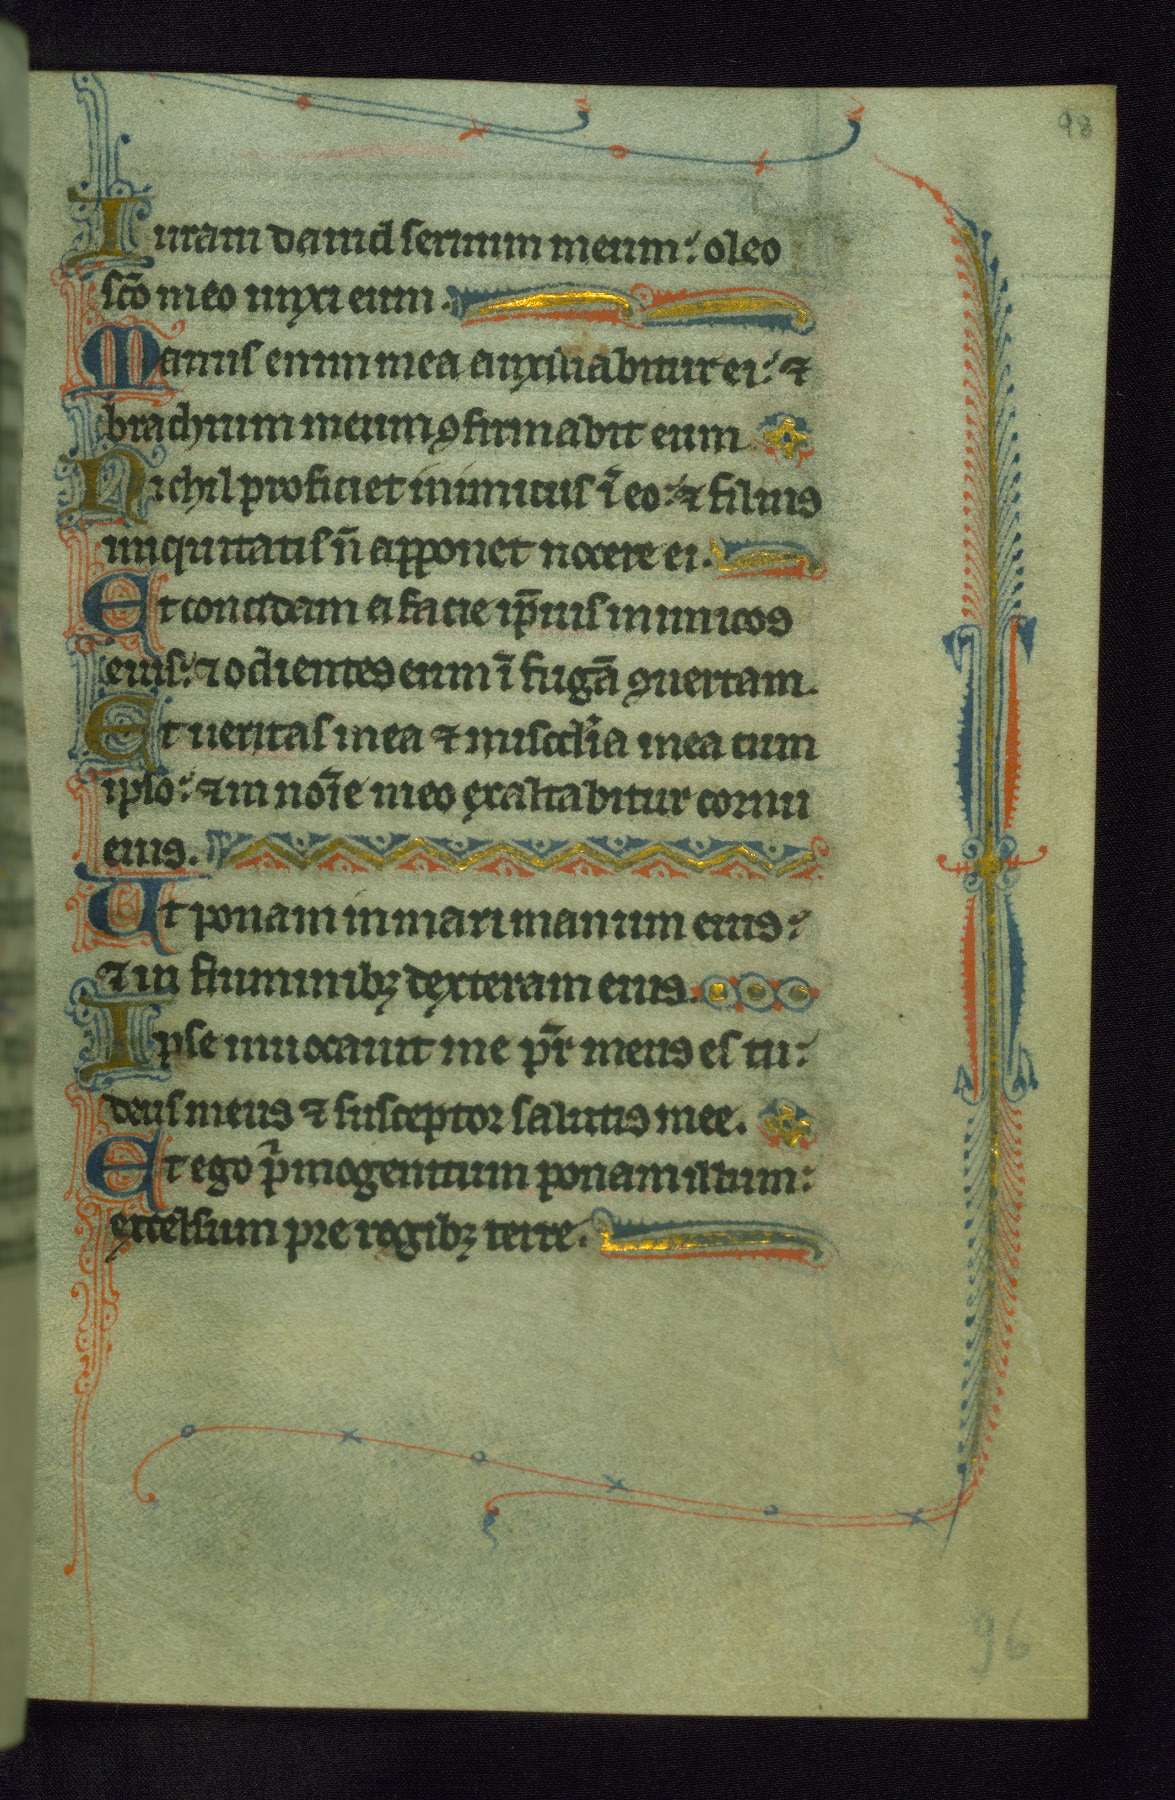 98
Iuram dauid seruum meum: oleo
sc̄o meo unxi eum.
Manus enim mea auxiliabitur ei: ⁊
brachium meum ꝯfirmabit eum
Nichil proficiet inimicus ī eo: ⁊ filius
iniquitatis n̄ apponet nocere ei.
Et concidam a facie ip̄ius inimicos
eius: ⁊ odientes eum ī fugā ꝯuertam.
Et ueritas mea ⁊ misc̄dīa mea cum
ipso: ⁊ in noīe meo exaltabitur cornu
eius.
Et ponam in mari manum eius:
⁊ in fluminibꝫ dexteram eius.
Ipse inuocauit me pr̄ meus es tu:
deus meus ⁊ susceptor salutis mee.
Et ego pͥmogenitum ponam illum:
excelsum pre regibꝫ terre.
96